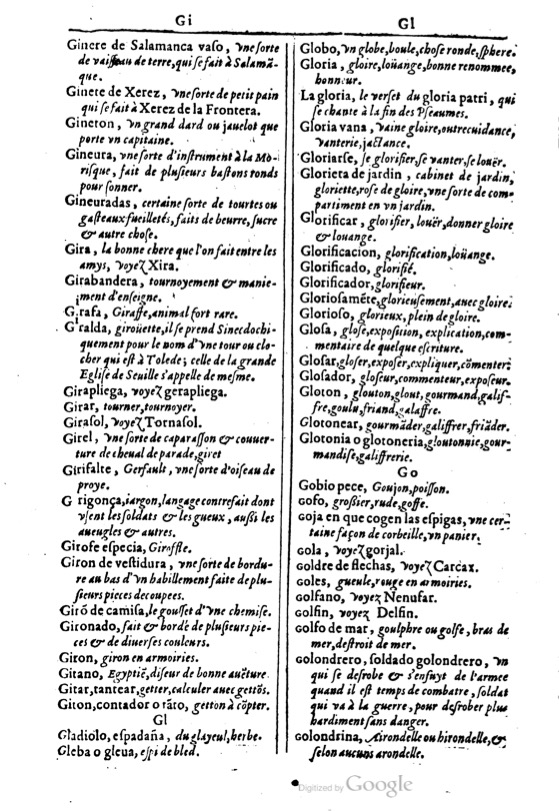 Gi
Ginete de Salamanca vaso, vne sorte
de vaisseau de terre, qui se fait à Salamā-
que.
Ginete de Xerez, vne sorte de petit pain
qui se fait à Xerez de la Frontera.
Gineton, vn grand dard ou jauelot que
porte vn capitaine.
Gineura, vne sorte d'instrument à la Mo-
risque, fait de plusieurs bastons ronds
pour sonner.
Gineuradas, certaine sorte de tourtes ou
gasteaux fueilletés, faits de beurre, sucre
& autre chose.
Gira, la bonne chere que l'on fait entre les
amys, voyez Xira.
Girabandera, tournoyement & manie-
ment d'enseigne.
Girafa, Giraffe, animal fort rare.
Giralda, girouette, il se prend Sinecdochi-
quement pour le nom d'vne tour ou clo-
cher qui est à Tolede; celle de la grande
Eglise de Seuille s'appelle de mesme.
Girapliega, voyez gerapliega.
Girar, tourner, tournoyer.
Girasol, voyez Tornasol.
Girel, vne sorte de caparasson & couuer-
ture de cheual de parade, giret
Girifalte, Gerfault, vne sorte d'oiseau de
proye.
Girigonça, iargon, langage contrefait dont
vsent les soldats & les gueux, aussi les
aueugles & autres.
Girofe especia, Giroffle.
Giron de vestidura, vne sorte de bordu-
re au bas d'vn habillement faite de plu-
sieurs pieces decoupees.
Girō de camisa, le gousset d'vne chemise.
Gironado, fait & bordé de plusieurs pie-
ces & de diuerses couleurs.
Giron, giron en armoiries.
Gitano, Egyptiē, diseur de bonne auēture.
Gitar, tantear, getter, calculer auec gettōs.
Giton, contador o tāto, getton à cōpter.
Gl
Gladiolo, espadaña, du glayeul, herbe.
Gleba o gleua, espi de bled.
Gl
Globo, vn globe, boule, chose ronde, sphere.
Gloria, gloire, loüange, bonne renommee,
honneur.
La gloria, le verset du gloria patri, qui
se chante à la fin des Pseaumes.
Gloria vana, vaine gloire, outrecuidance,
vanterie, jactance.
Gloriarse, se glorifier, se vanter, se louër.
Glorieta de jardin, cabinet de jardin,
gloriette, rose de gloire, vne sorte de com-
partiment en vn jardin.
Glorificar, glorifier, louër, donner gloire
& louange.
Glorificacion, glorification, loüange.
Glorificado, glorifié.
Glorificador, glorifieur.
Gloriosamēte, glorieusement, auec gloire.
Glorioso, glorieux, plein de gloire.
Glosa, glose, exposition, explication, com-
mentaire de quelque escriture.
Glosar, gloser, exposer, expliquer, cōmenter.
Glosador, gloseur, commenteur, exposeur.
Gloton, glouton, glout, gourmand, galif-
fre, goulu, friand, galaffre.
Glotonear, gourmāder, galiffrer, friāder.
Glotonia o glotoneria, gloutonnie, gour-
mandise, galiffrerie.
Go
Gobio pece, Goujon, poisson.
gofo, grossier, rude, goffe.
goja en que cogen las espigas, vne cer-
taine façon de corbeille, vn panier.
gola, voyez gorjal.
goldre de flechas, voyez Carcax.
goles, gueule, rouge en armoiries.
golfano, voyez Nenufar.
golfin, voyez Delfin.
golfo de mar, goulphre ou golfe, bras de
mer, destroit de mer.
golondrero, soldado golondrero, vn
qui se desrobe & s'ensuyt de l'armee
quand il est temps de combatre, soldat
qui va à la guerre, pour desrober plus
hardiment sans danger.
golondrina, Airondelle ou hirondelle, &
selon aucuns arondelle.
Digitized by Google